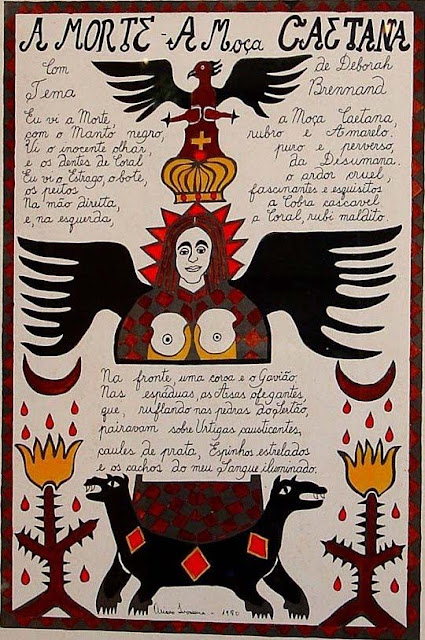 A MORTE - A Moça CAETANA
Com de Deborah
Tema Brennand
Eu vi a Morte, a Moça Caetana,
com o Manto negro, rubro e Amarelo.
Vi o inocente olhar, puro e perverso,
e os dentes de Coral da Desumana.
Eu vi o Estrago, o bote, o ardor cruel,
os peitos fascinantes e esquisitos.
Na mão direita, a Cobra cascavel
e, na esquerda, a Coral, rubi maldito.
Na fronte, uma coroa e o Gavião.
Nas espáduas, as Asas ofegantes
que, ruflando nas pedras do Sertão,
pairavam sobre Urtigas causticantes,
caules de prata, Espinhos estrelados
e os cachos do meu Sangue iluminado.
Ariano Suassuna - 1980